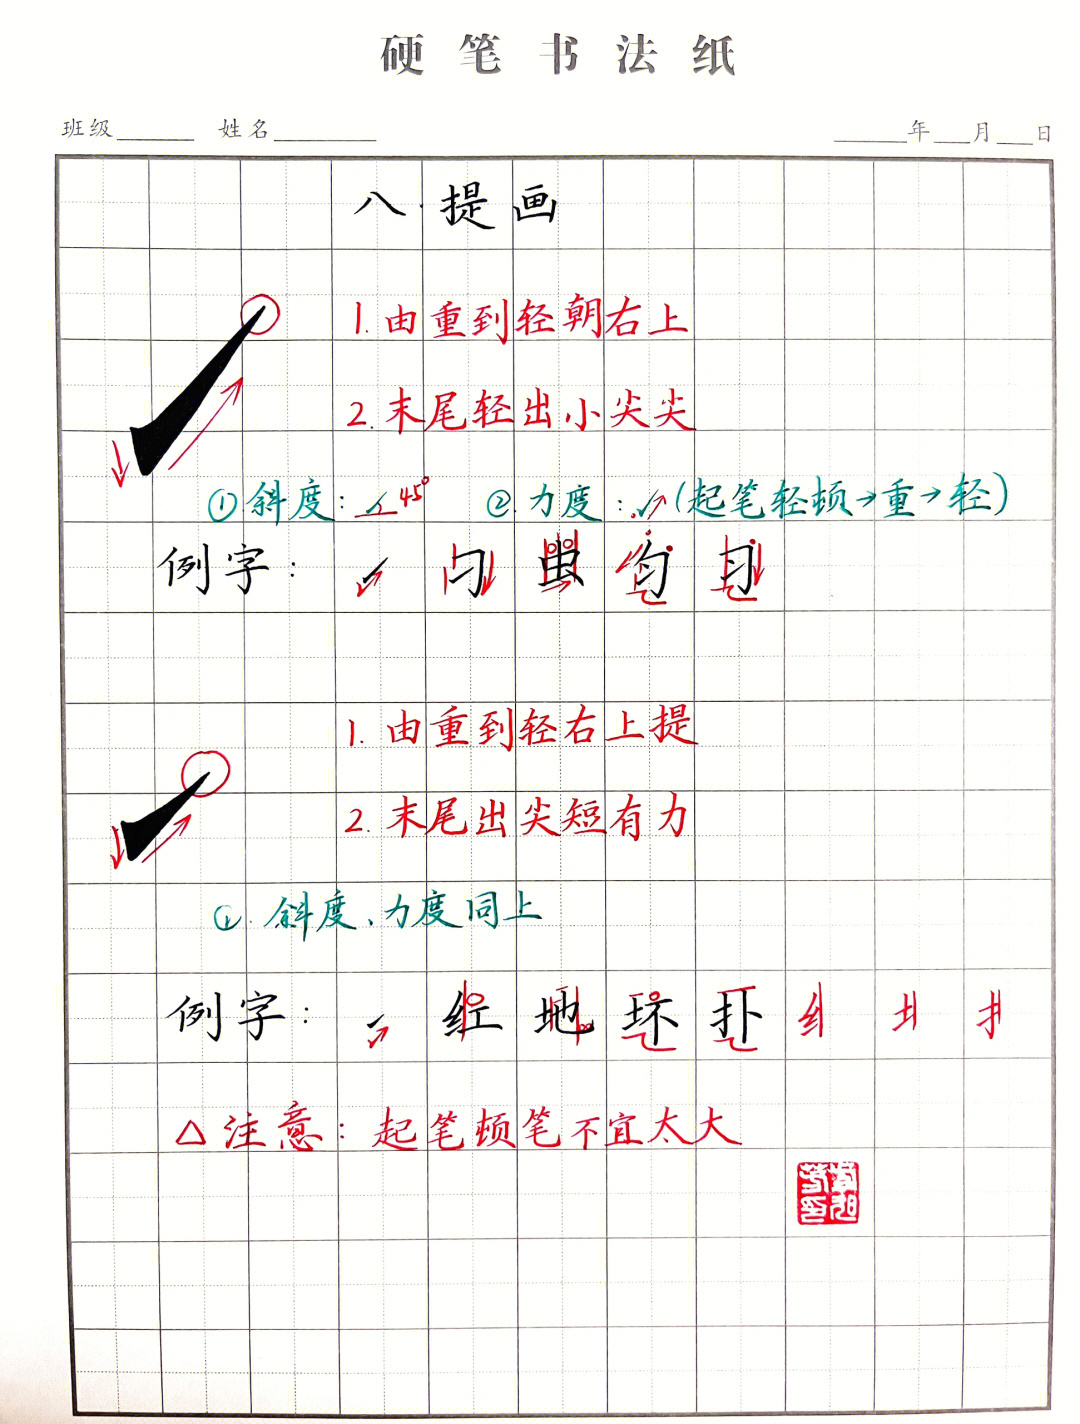 硬笔书法纸
班级 姓名 年 月 日
八.提画
1.由重到轻朝右上
2.末尾轻出小尖尖
①斜度: 45° ②力度: (起笔轻顿→重→轻)
例字: 习 虫 匀 习
1.由重到轻右上提
2.末尾出尖短有力
①.斜度、力度同上
例字: 红 地 环 扑 纟 扌
△注意:起笔顿笔不宜太大